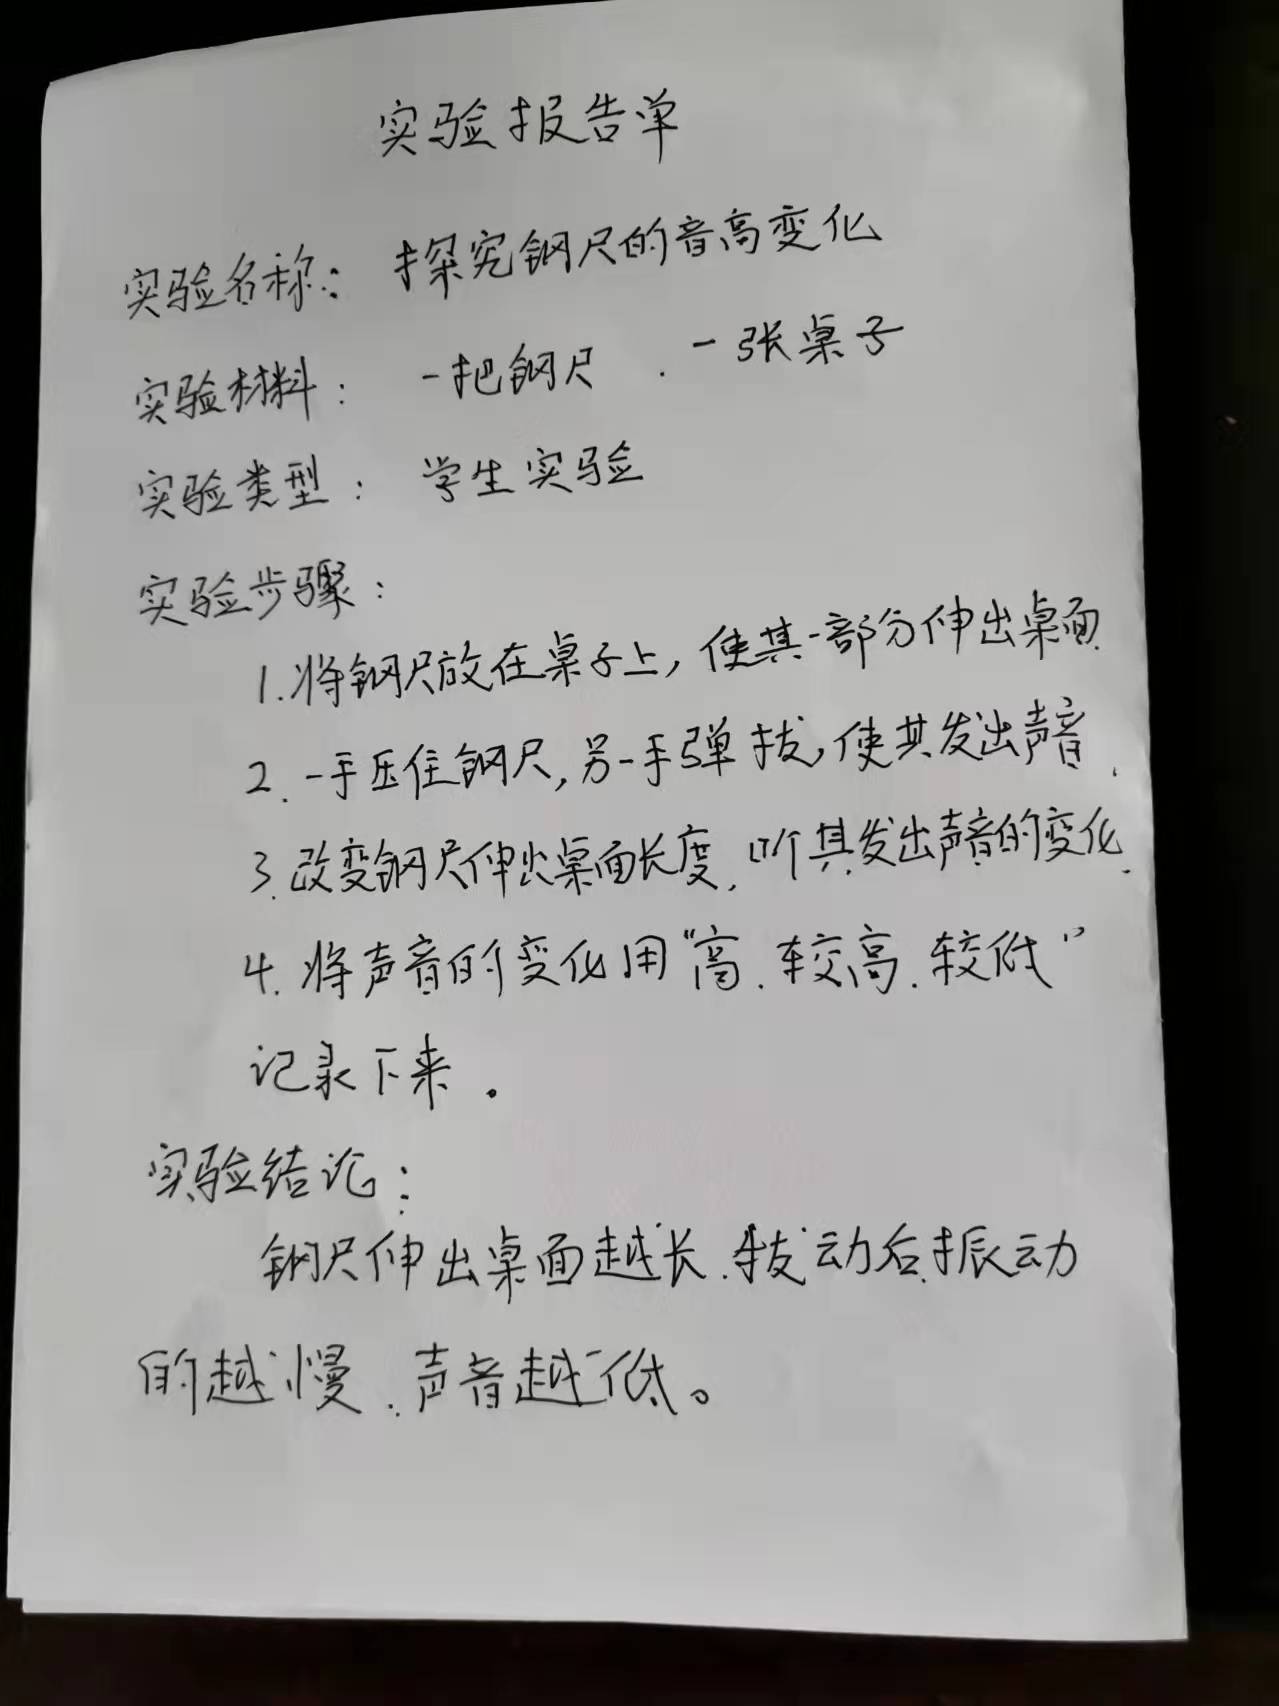 实验报告单
实验名称：探究钢尺的音高变化
实验材料：一把钢尺．一张桌子
实验类型：学生实验
实验步骤：
1.将钢尺放在桌子上，使其一部分伸出桌面.
2.一手压住钢尺，另一手弹拔，使其发出声音.
3.改变钢尺伸出桌面长度.听其发出声音的变化.
4.将声音的变化用“高.较高.较低”
记录下来。
实验结论：
钢尺伸出桌面越长.拔动后振动
的越慢.声音越低。